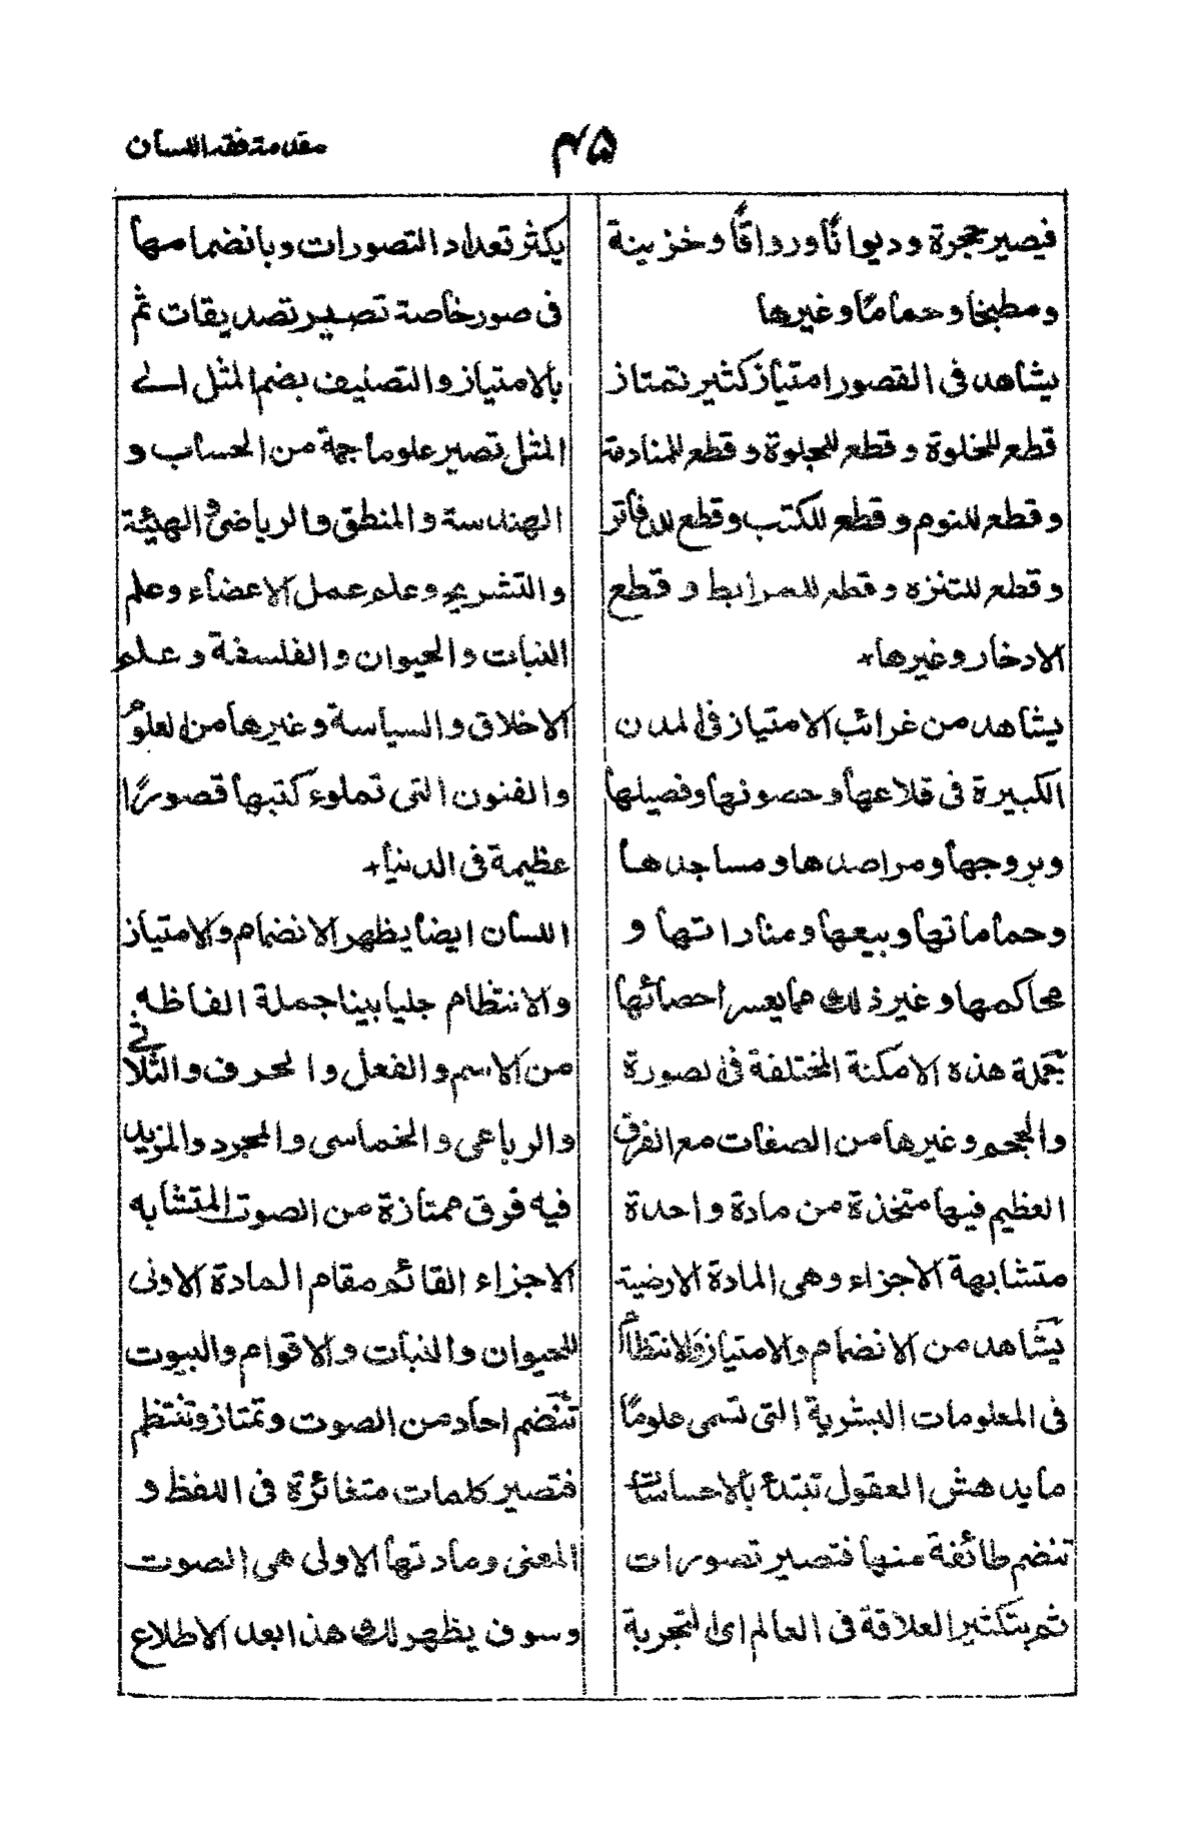 مقدمة فقه اللسان
۴۵
فيصير حجرة وديوانًا ورواقًا وخزينة
ومطبخا وحمامًا وغيرها
يشاهد فى القصور امتياز كثير تمتاز
قطع للخلوة وقطع للجلوة وقطع للمنادمة
وقطع للنوم وقطع للكتب وقطع للدفاتر
وقطع للتنزه وقطع للمرابط وقطع
الادخار وغيرها+
يشاهد من غرائب الامتياز فى المدن
الكبيرة فى قلاعها وحصونها وفصيلها
وبروجها ومراصدها ومساجدها
وحماماتها وبيعها ومناراتها و
محاكمها وغير ذلك مما يعسر احصائها
جملة هذه الامكنة المختلفة فى الصورة
والحجم وغيرها من الصفات مع الفرق
العظيم فيها متخذة من مادة واحدة
متشابهة الاجزاء وهى المادة الارضية
يشاهد من الانضمام والامتياز والانتظام
فى المعلومات البشرية التى تسمى علومًا
ما يدهش العقول تبتدء بالاحساسات
تنضم طائفة منها فتصير تصورات
ثم بتكثير العلاقة فى العالم اى التجربة
يكثر تعداد التصورات وبانضمامها
فى صور خاصة تصير تصديقات ثم
بالامتياز والتصنيف بضم المثل الى
المثل تصير علوما جمة من الحساب و
الهندسة والمنطق والرياضى والهيئة
والتشريح وعلم عمل الاعضاء وعلم
النبات والحيوان والفلسفة وعلم
الاخلاق والسياسة وغيرها من العلوم
والفنون التى تملوء كتبها قصورًا
عظيمة فى الدنيا+
اللسان ايضا يظهر الانضمام والامتياز
والانتظام جليا بينا جملة الفاظه
من الاسم والفعل والحرف والثلاثى
والرباعى والخماسى والمجرد والمزيد
فيه فوق ممتازة من الصوت المتشابه
الاجزاء القائم مقام المادة الاولى
للحيوان والنبات والاقوام والبيوت
تنضم احاد من الصوت وتمتاز وتنتظم
فتصير كلمات متغائرة فى اللفظ و
المعنى ومادتها الاولى هى الصوت
وسوف يظهر لك هذا بعد الاطلاع